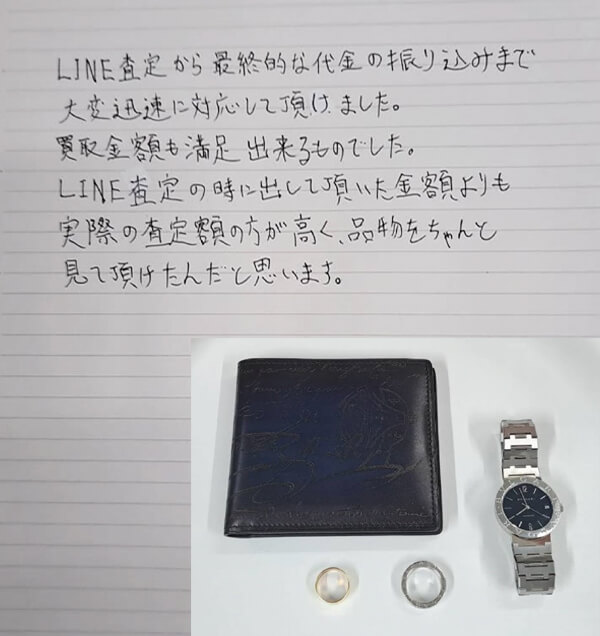 LINE査定から最終的な代金の振り込みまで
大変迅速に対応して頂けました。
買取金額も満足出来るものでした。
LINE査定の時に出して頂いた金額よりも
実際の査定額の方が高く、品物をちゃんと
見て頂けたんだと思います。